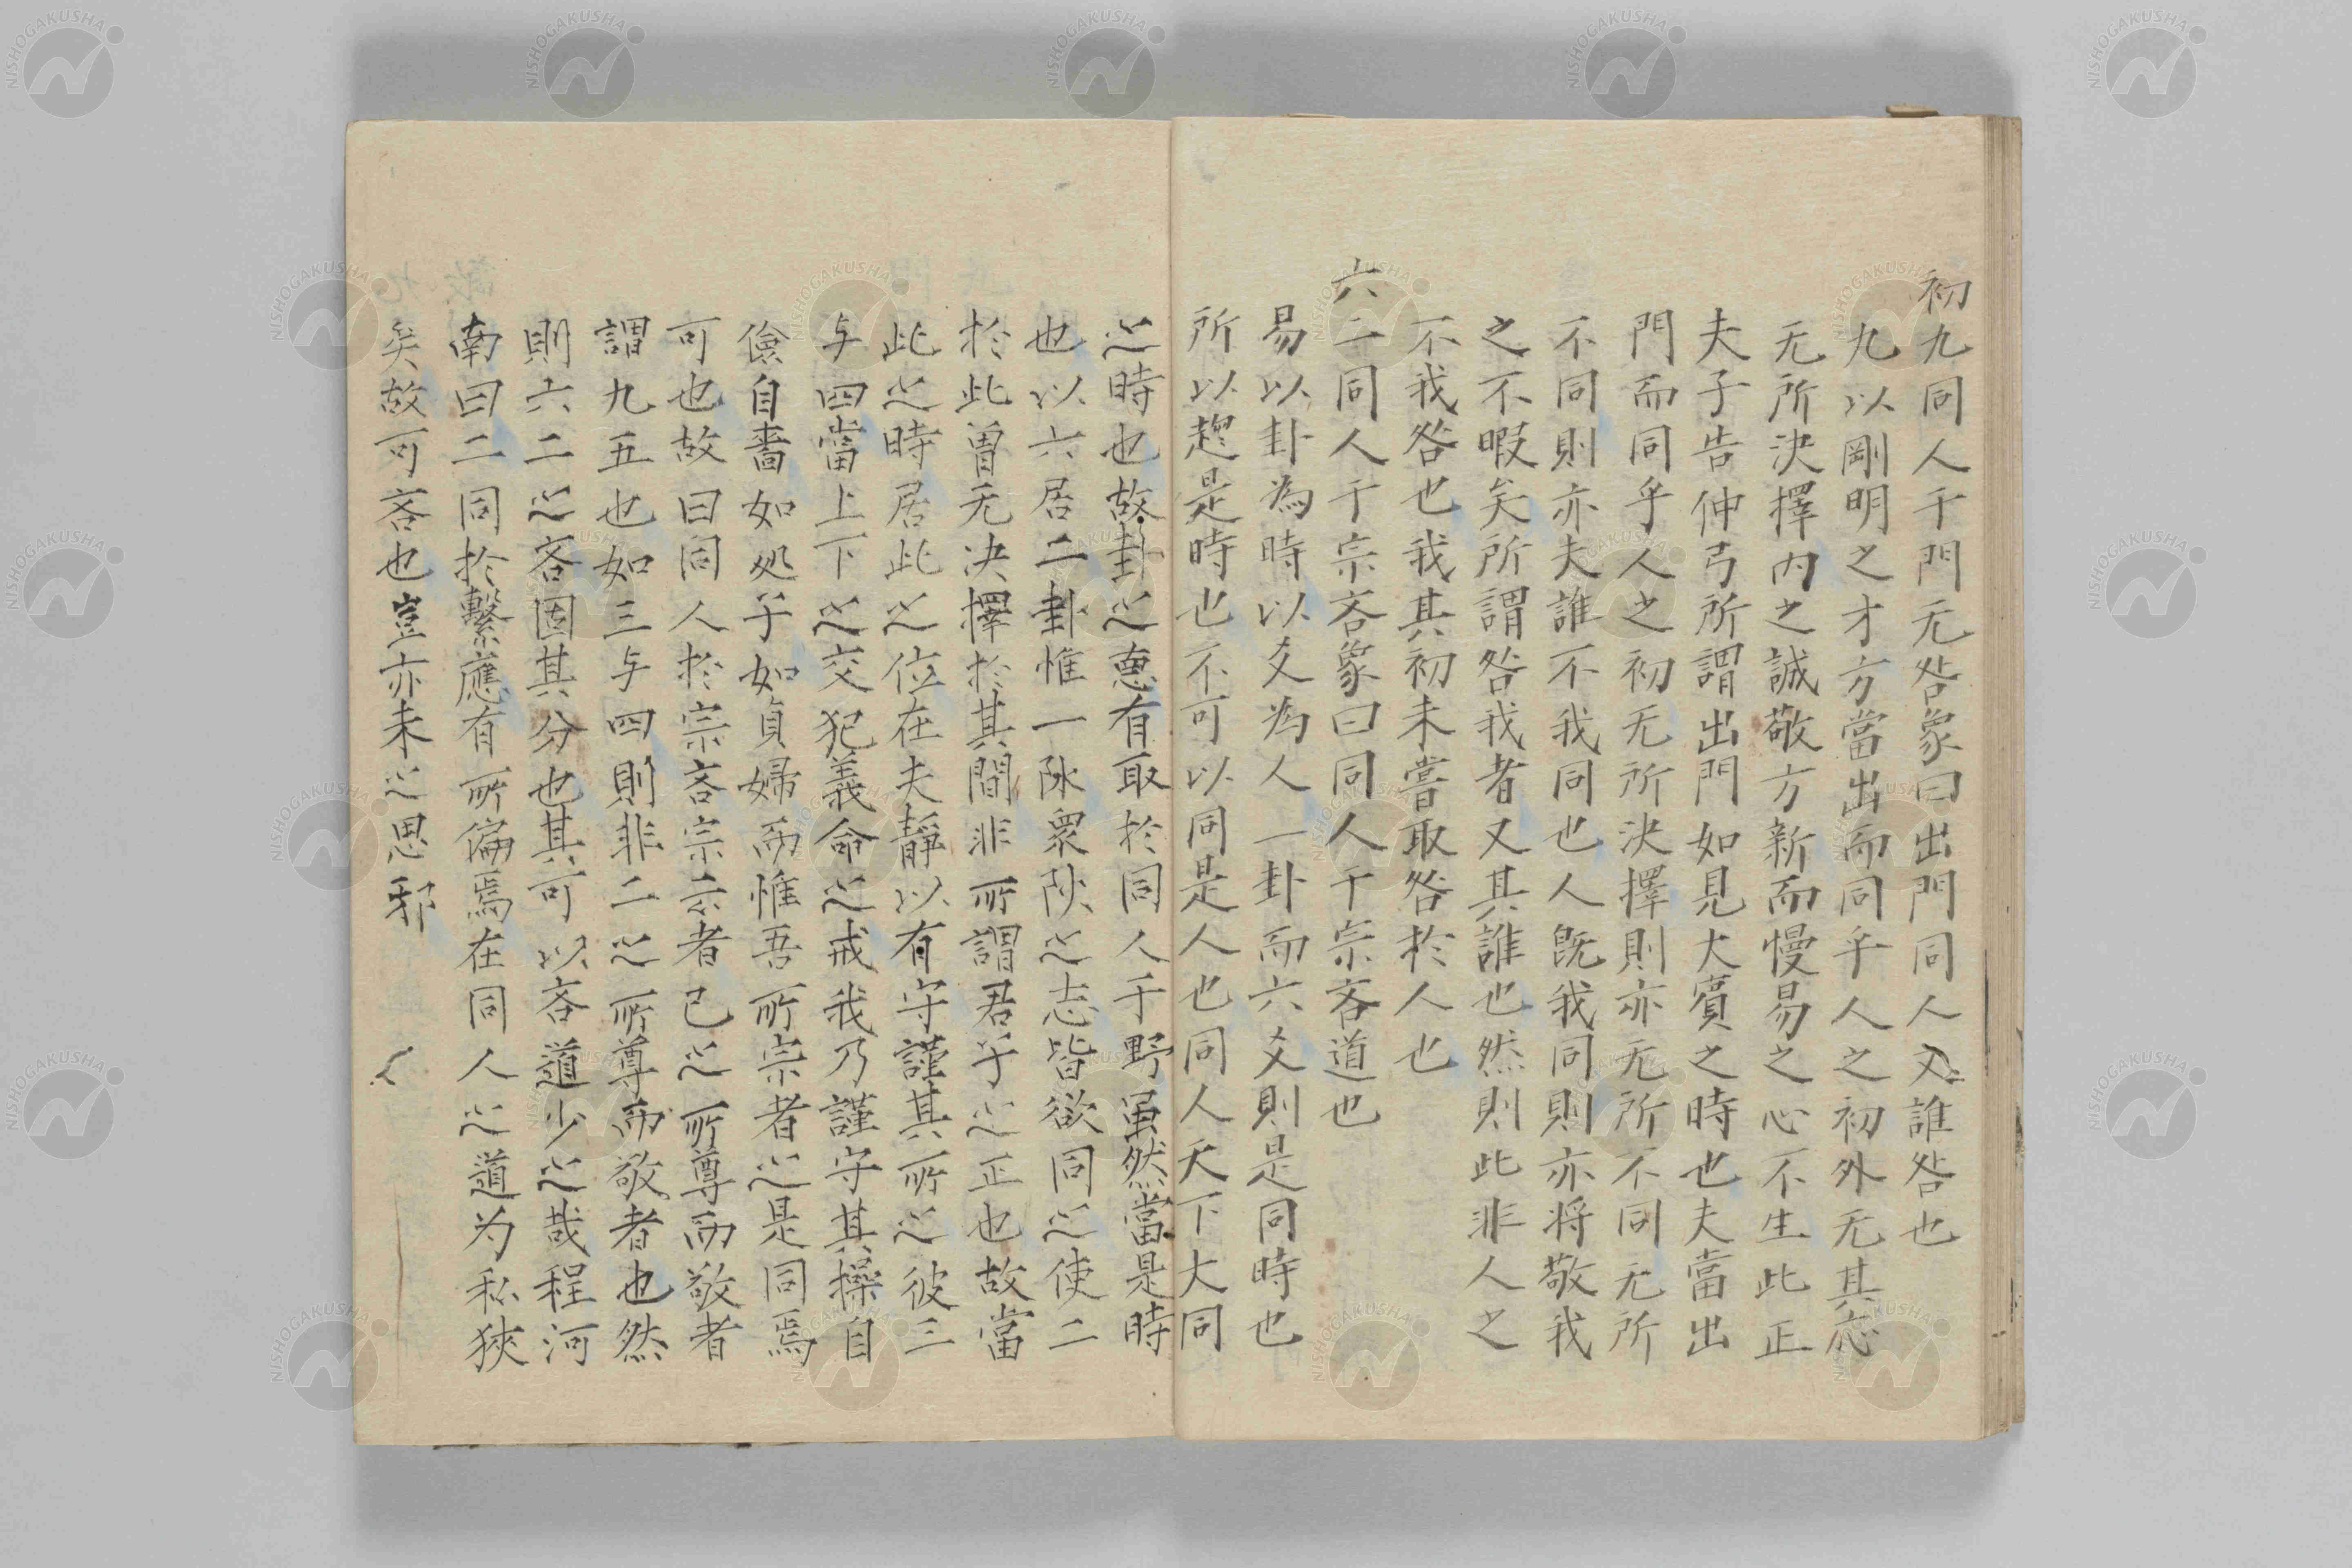 初九同人于門无咎象曰出門同人又誰咎也
九以剛明之才方當出而同乎人之初外无其応
无所決擇内之誠敬方新而慢易之心不生此正
夫子告仲弓所謂出門如見大賓之時也夫當出
門而同乎人之初无所決擇則亦无所不同无所
不同則亦夫誰不我同也人既我同則亦将敬我
之不暇矣所謂咎我者又其誰也然則此非人之
不我咎也我其初未嘗取咎於人也
六二同人于宗吝象曰同人于宗吝道也
易以卦為時以爻為人一卦而六爻則是同時也
所以趍是時也不可以同是人也同人天下大同
之時也故卦之惪有取於同人于野虽然當是時
也以六居二卦惟一阥衆阦之志皆欲同之使二
於此曽无决擇於其間非所謂君子之正也故當
此之時居此之位在夫靜以有守謹其所之彼三
与四當上下之交犯義命之戒我乃謹守其操自
儉自嗇如処子如貞婦而惟吾所宗者之是同焉
可也故曰同人於宗吝宗云者己之所尊而敬者
謂九五也如三与四則非二之所尊而敬者也然
則六二之吝固其分也其可以吝道少之哉程河
南曰二同於繫應有所偏焉在同人之道为私狹
矣故可吝也豈亦未之思邪
NISHOGAKUSHA